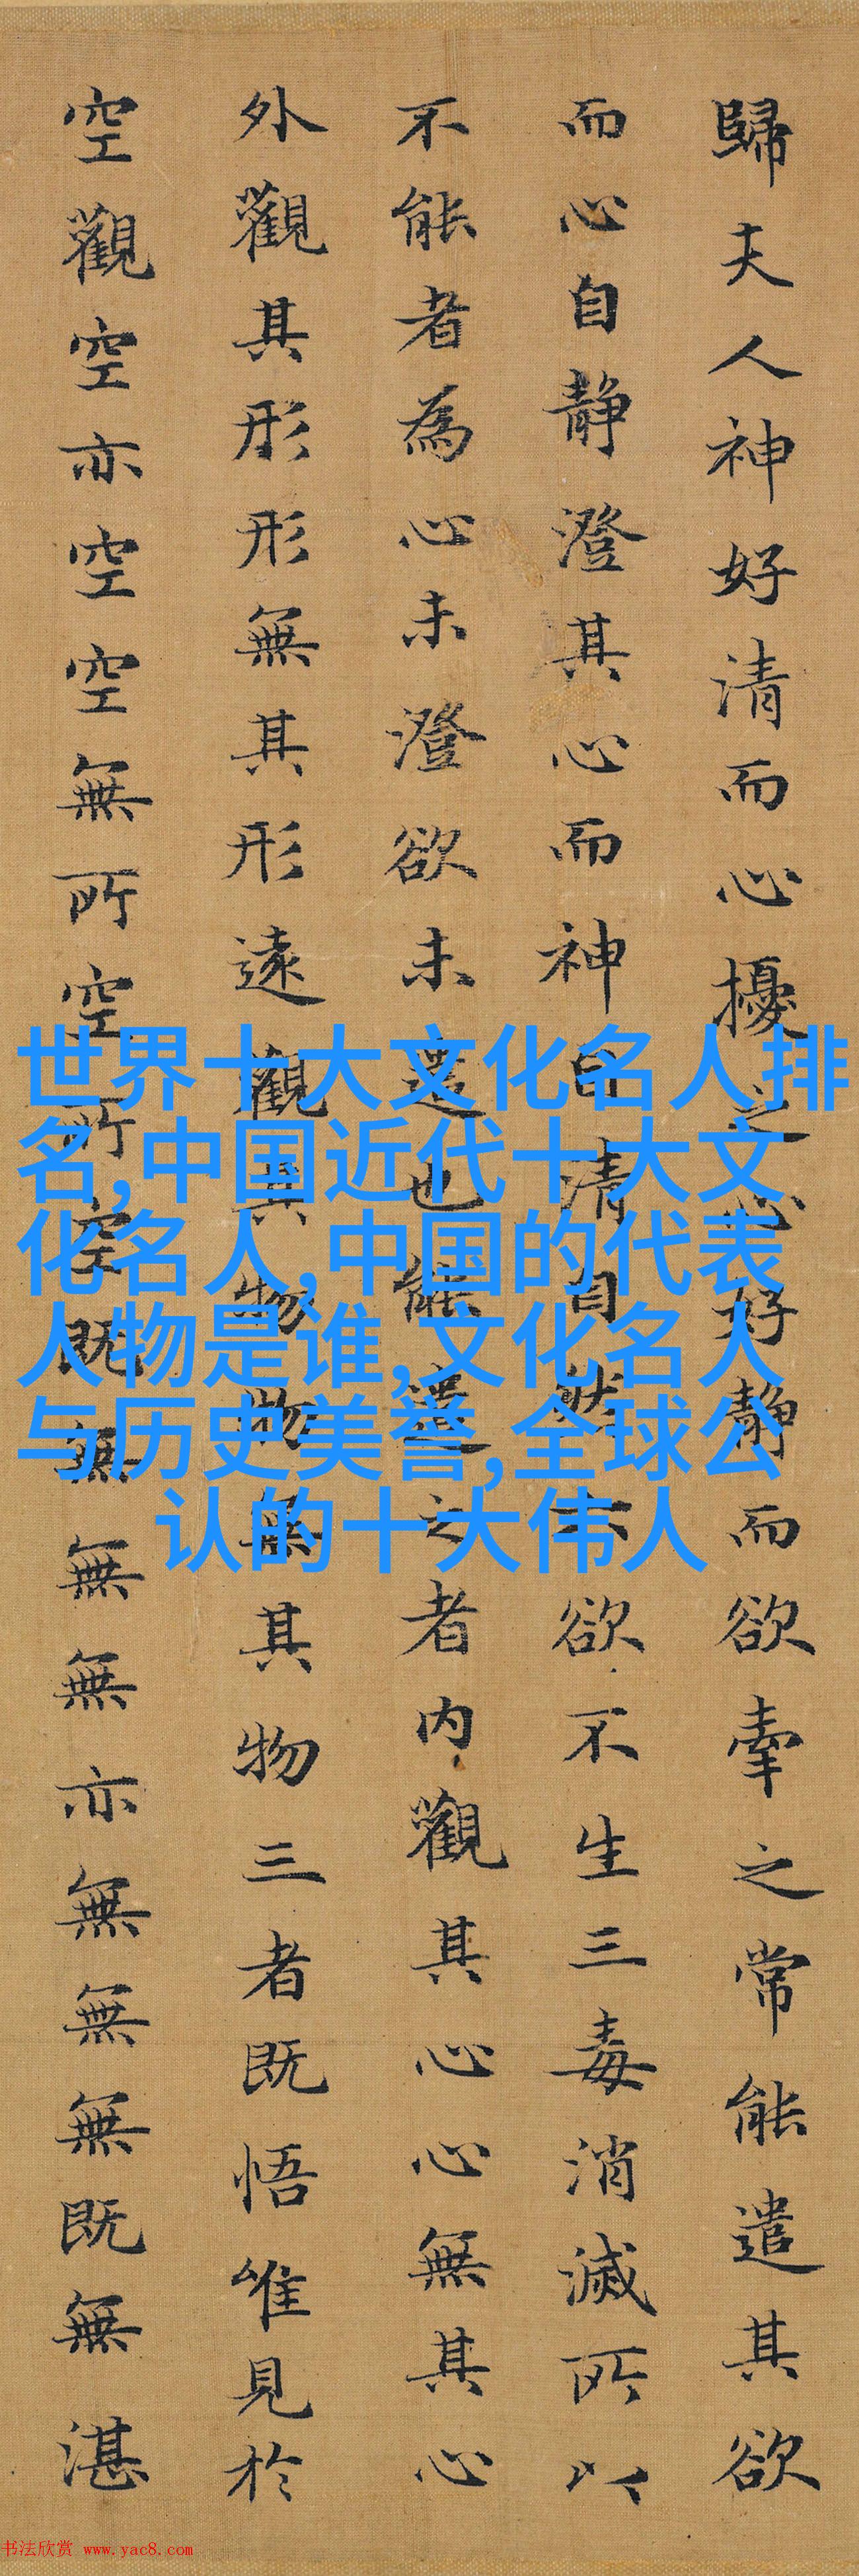 歸夫人神好清而心擾之心好靜而欲牽之常能遣其欲
而心自靜澄其心而神自清自然六欲不生三毒消滅所以
不能者為心未澄欲未遣也能遣之者內觀其心心無其心
外觀其形形無其形遠觀其物物無其物三者既悟唯見於
空觀空亦空空無所空所空既無無無亦無無無既無湛
世界十大文化名人排
名,中国近代十大文
化名人,中国的代表
人物是谁,文化名人
与历史美誉,全球公
认的十大伟人
书法欣赏 www.yac8.com